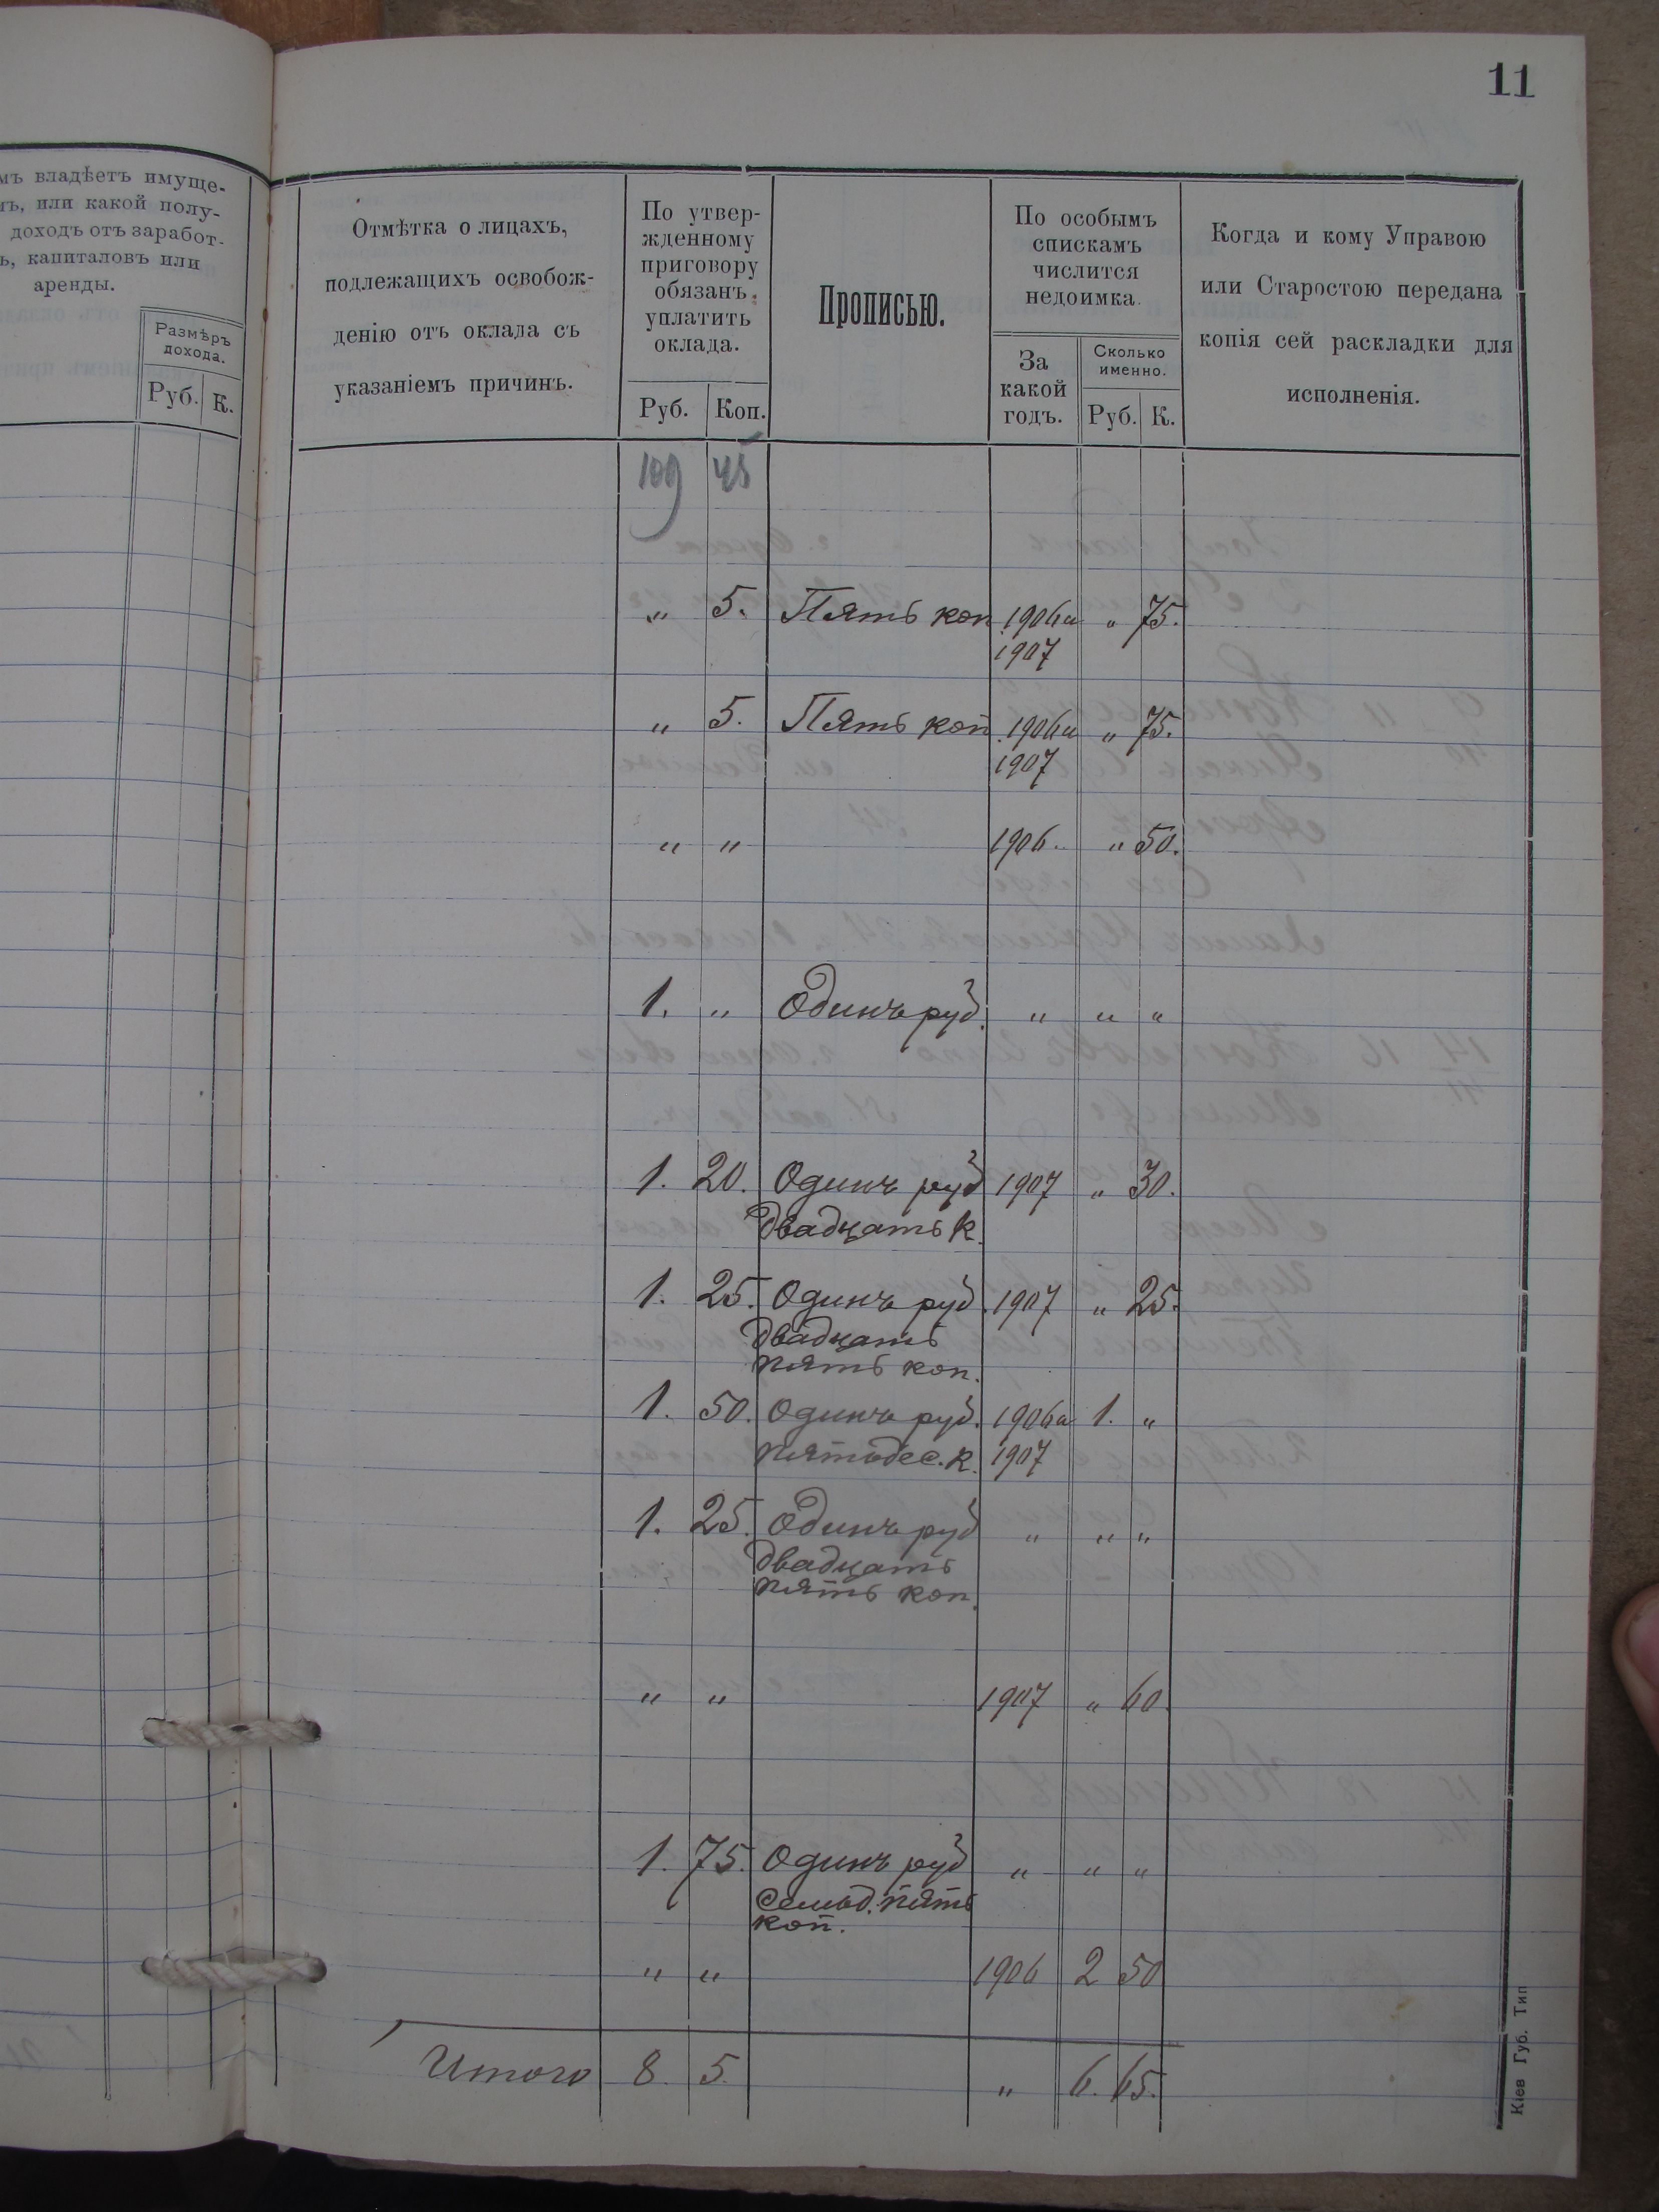 11
мъ владѣетъ имуще-
мъ, или какой полу-
доходъ отъ заработ-
ь, капиталовъ или
аренды.
Размѣръ
дохода.
Руб. К.
Отмѣтка о лицахъ,
подлежащихъ освобож-
денію отъ оклада съ
указаніемъ причинъ.
По утвер-
жденному
приговору
обязанъ
уплатить
оклада.
Руб. Коп.
Прописью.
По особымъ
спискамъ
числится
недоимка.
За
какой
годъ.
Сколько
именно.
Руб. К.
Когда и кому Управою
или Старостою передана
копія сей раскладки для
исполненія.
109 45
„ 5. Пять коп 1906 и „ 75.
1907
„ 5. Пять коп 1906 и „ 75.
1907
„ „ 1906. „ 50.
1. „ Одинъ руб. „ „ „
1. 20. Одинъ руб 1907 „ 30.
двадцать к.
1. 25. Одинъ руб. 1907 „ 25.
двадцать
пять коп.
1. 50. Одинъ руб. 1906 и 1. „
пятьдес. к. 1907
1. 25. Одинъ руб „ „ „
двадцать
пять коп.
„ „ 1907 „ 60.
1. 75. Одинъ руб „ „ „
семьд. пять
коп.
„ „ 1906 2 50
Итого 8. 5. „ 6. 65.
Кіев Губ. Тип